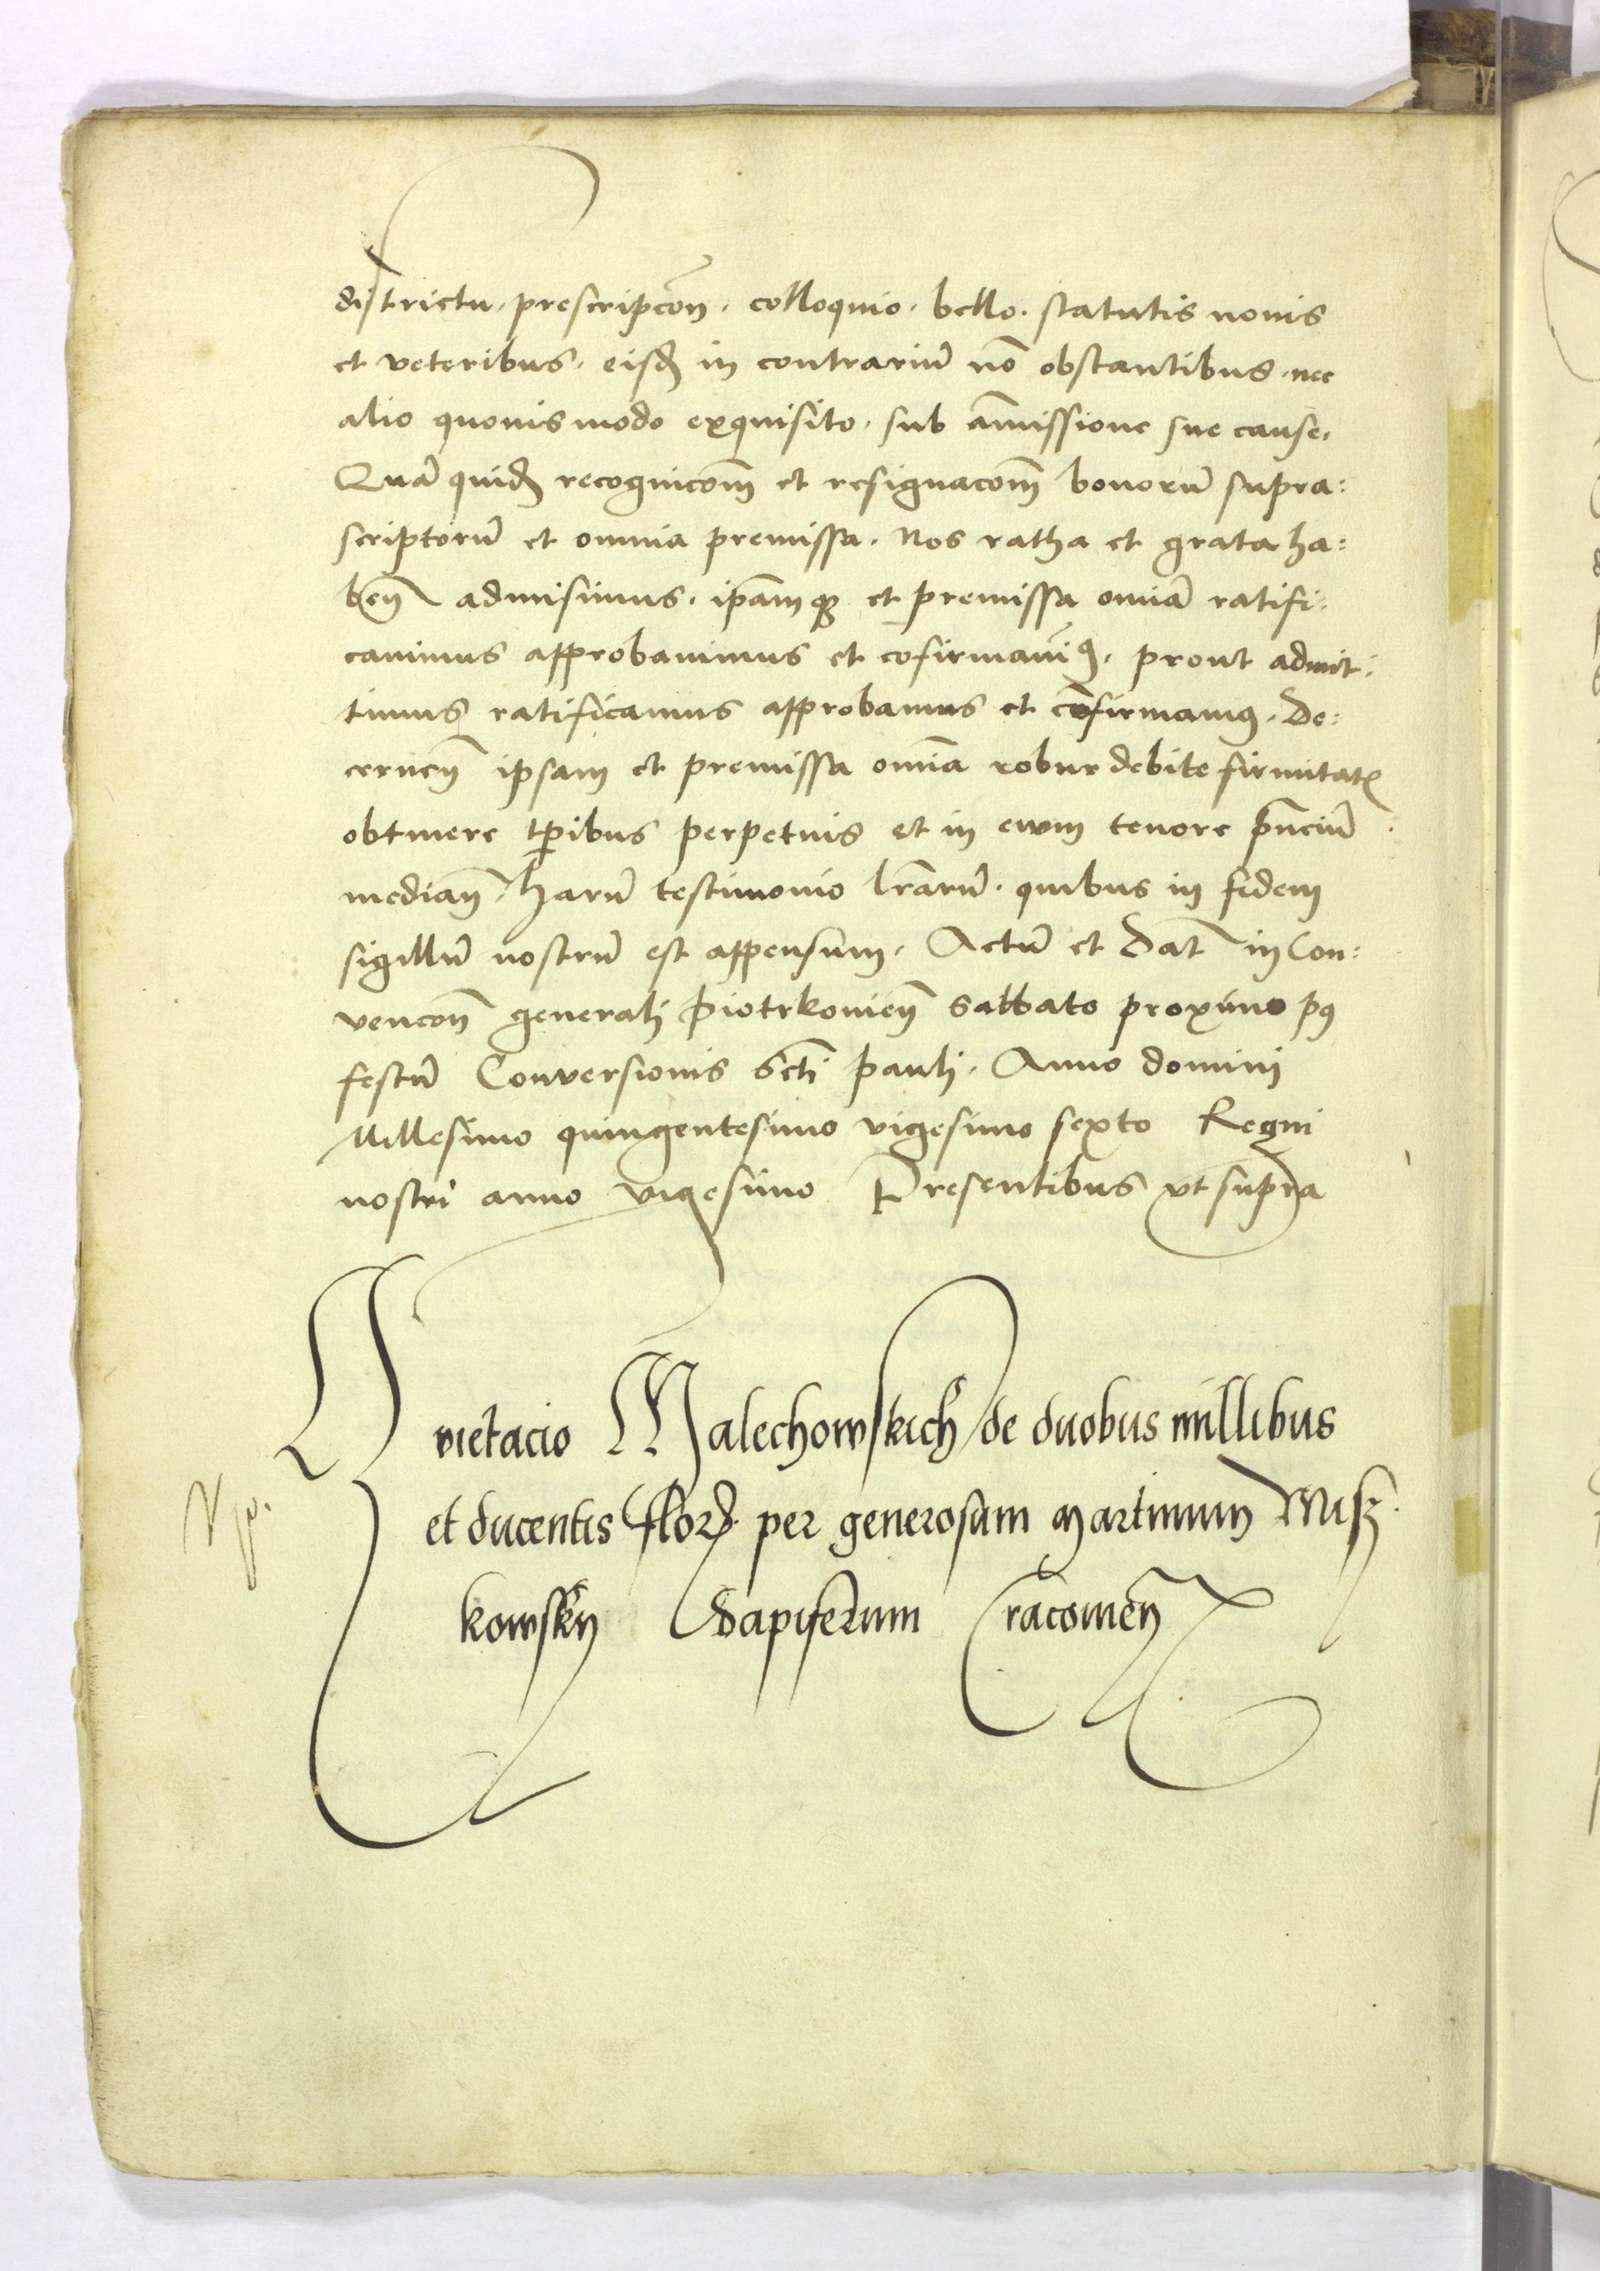 districtu · prescripcōn · colloquio · bello · statutis novis
et veteribus · eisd in contrariū nō obstantibus · nec
alio quovis modo exquisito · sub āmissione sue cause ·
Quā quid recognicōm et resignacōm bonorū supra:
scriptorū et omnia premissa · Nos ratha et grata ha:
ben̄ admisimus · ip̄am q3 et premissa om̄ia ratifi:
cavimus approbavimus et cōfirmavim9 · prout admit:
timus ratificamus approbamus et cōfirmam9 · De:
cernen̄ ipsam et premissa om̄ia robur debite firmitatꝭ
obtinere tp̄ibus perpetuis et in ewm tenore p̄nciū
median̄ · harū testimonio l̄rarū · quibus in fidem
sigillū nostrū est appensum · Actū et Dat̄ in Con:
vencōn generali Piotrkovien̄ Sabbato proximo p9
festū Conversionis Sc̄ti Pauli · Anno domini
Millesimo quingentesimo vigesimo sexto Regni
nostri anno vigesimo Presentibus ut supra
Qvietacio Malechowskich de duobus millibus
et ducentis flor. per generosum Martinum Misz
kowsky Dapiferum Cracovien̄